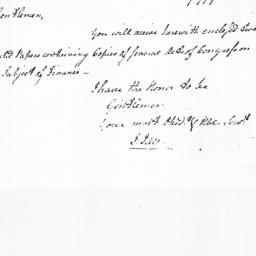 Gentlemen,
You will receive herewith enclosed two
Papers containing Copies of several Acts of Congress on
Subject of Finance —
I have the Honor to be
Gentlemen
Your most Obedt. & Hble Servt
J. Jay